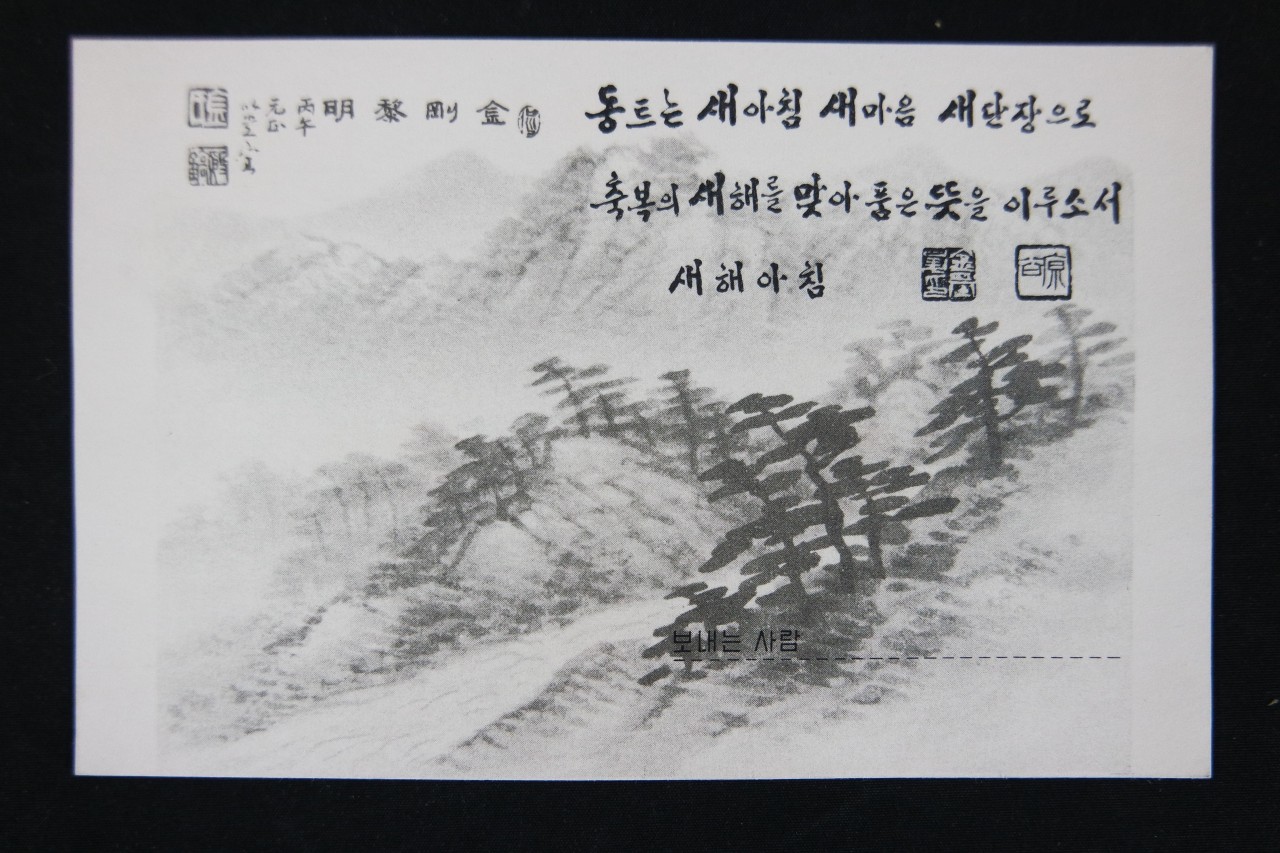 동트는 새아침 새마음 새단장으로
축복의 새해를 맞아 품은 뜻을 이루소서
새해아침
金剛黎明
丙午
元旦
보내는 사람